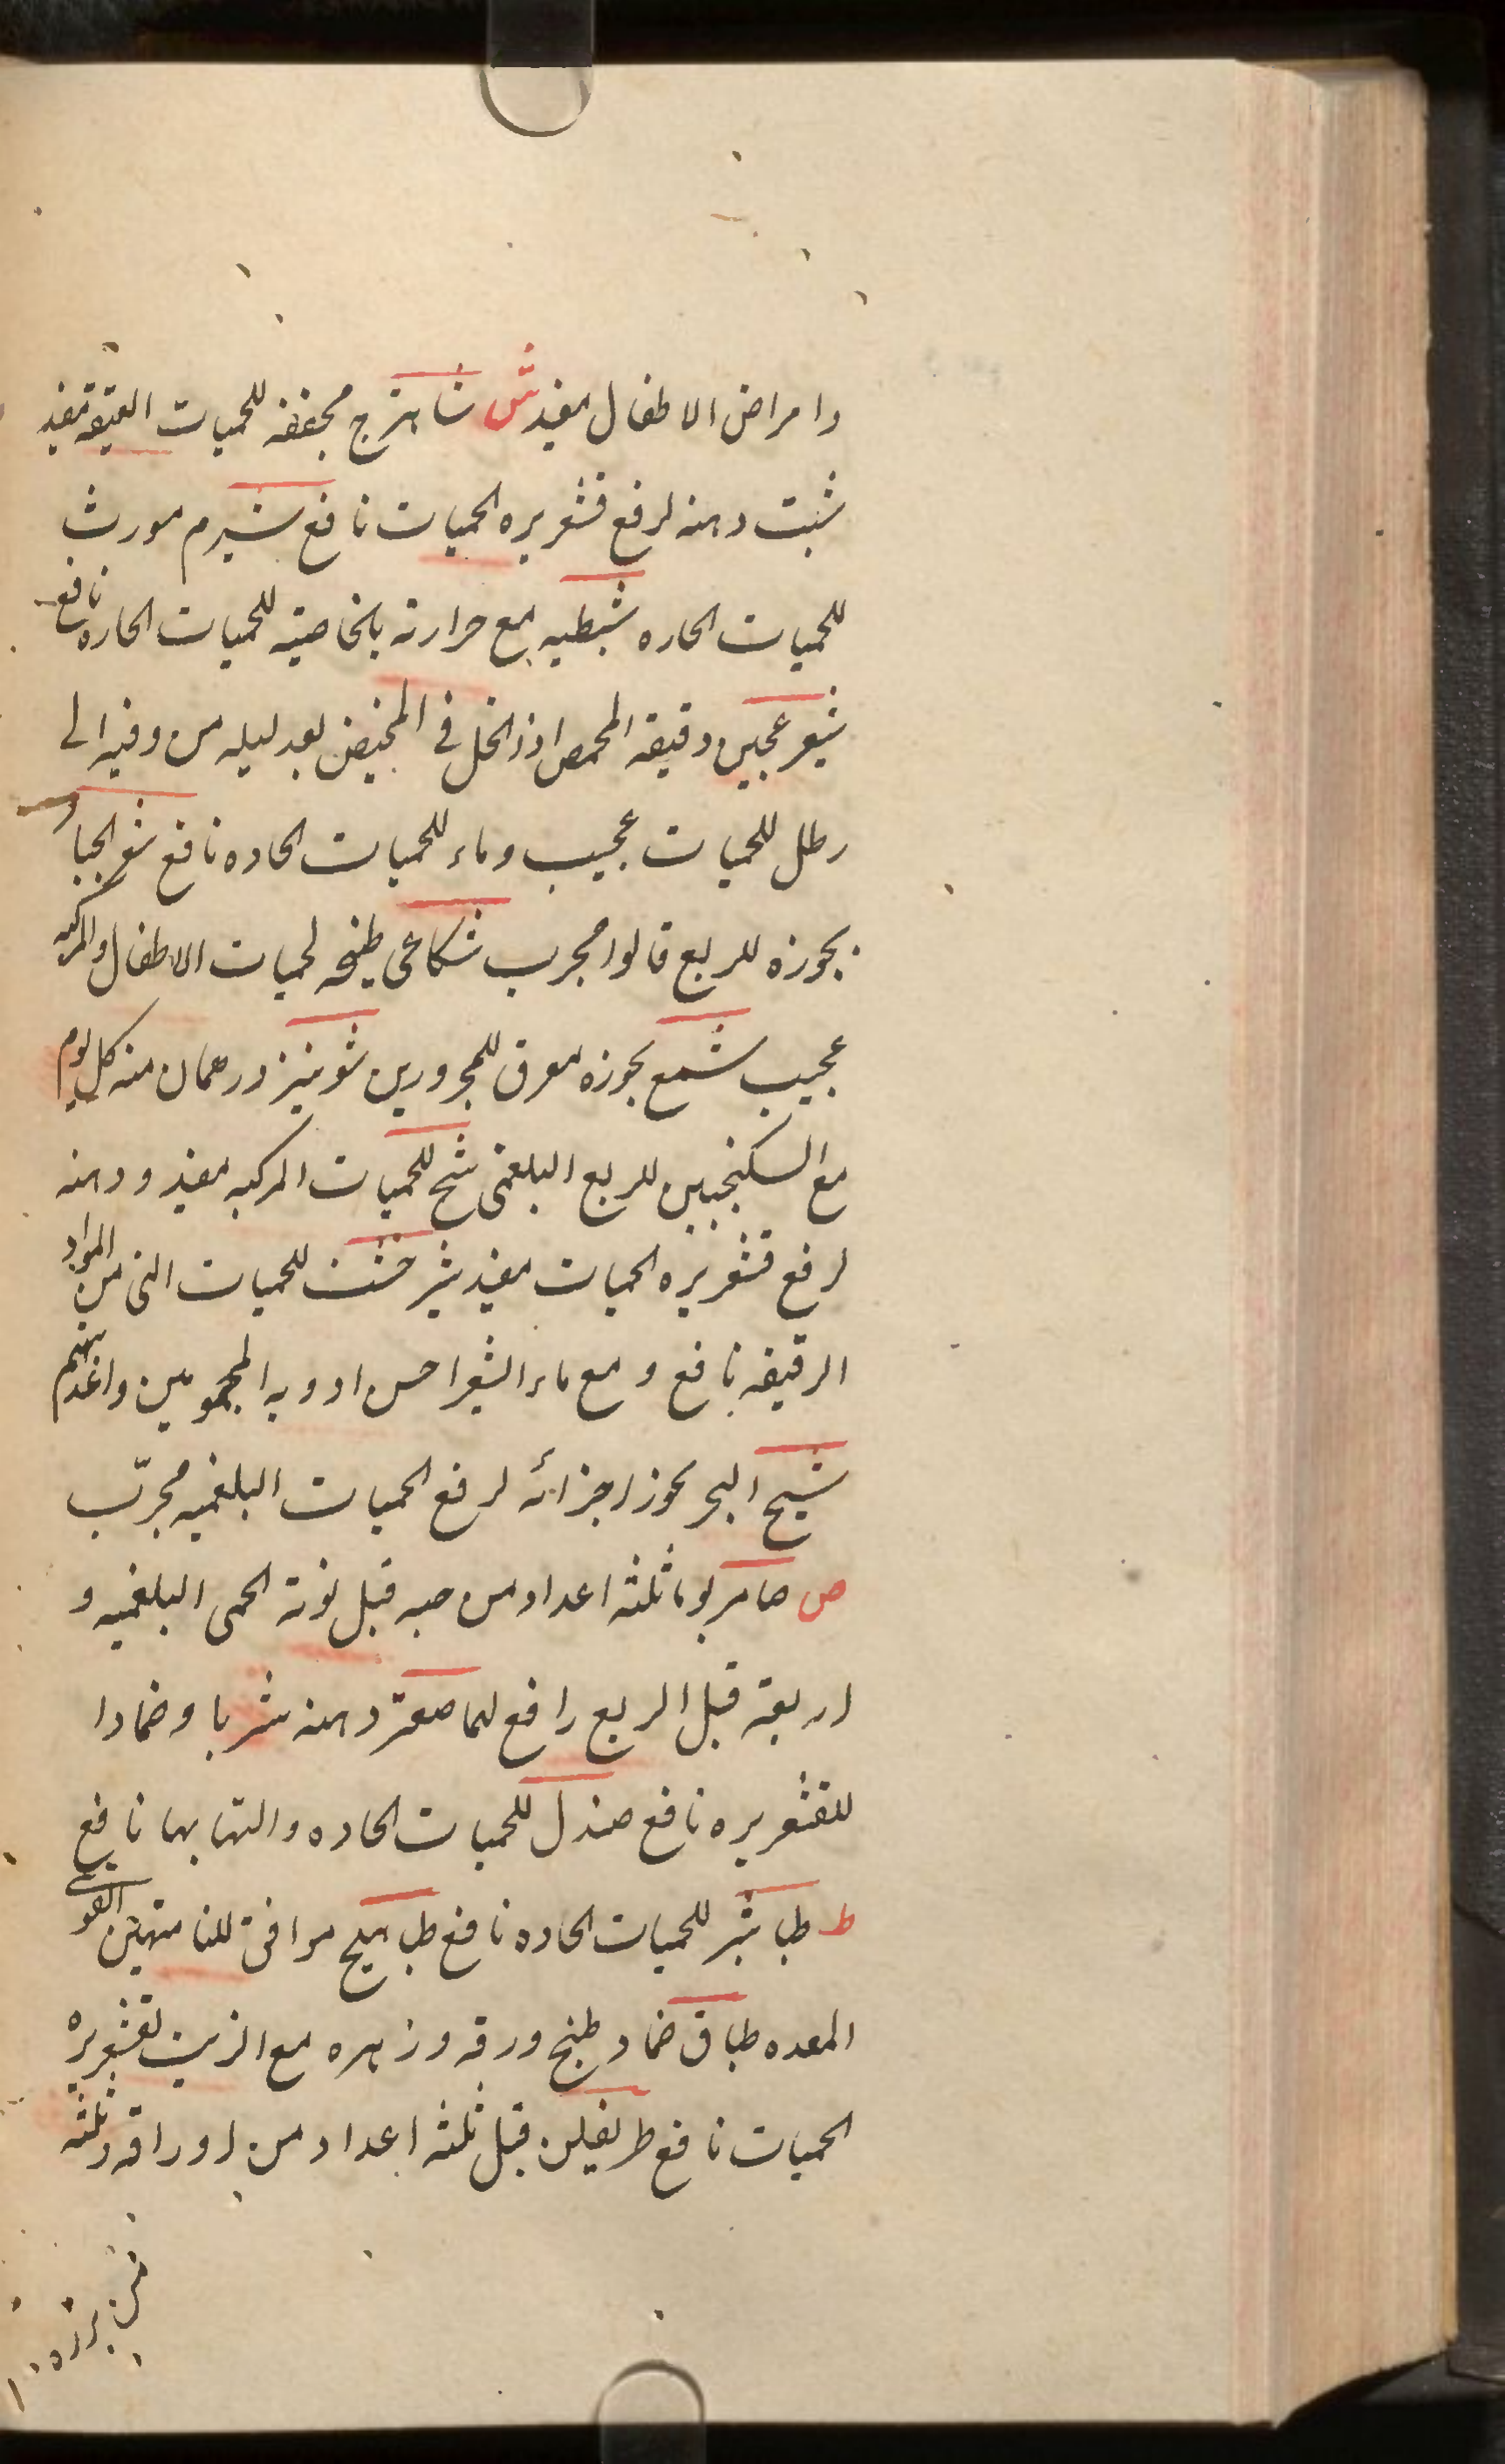 وامراض الاطفال مفید ش شاهترج مجففه للحمیات العتیقه مفید
شبت دهنه لرفع قشعریره الحمیات نافع شبرم مورث
للحمیات الحاره شبطیه مع حرارته بالخاصیته للحمیات الحاره نافع
شعیر عجین دقیقه المحمص اذا انحل فی المخیض بعد لیله من وقیه الی
رطل للحمیات عجیب وماء للحمیات الحاده نافع شعر الجبار
بخوره للربع قالوا مجرب شکاعی طبخه لحمیات الاطفال والمرکبه
عجیب شمع بخوره معرق للمحرورین شونیز درهمان منه کل یوم
مع السکنجبین للربع البلغمی شیح للحمیات المرکبه مفید ودهنه
لرفع قشعریره الحمیات مفید شیرخشت للحمیات التی من المواد
الرقیقه نافع ومع ماء الشعیر احسن ادویه المحمومین واغذیتهم
شیح البحر بخور اجزائه لرفع الحمیات البلغمیه مجرّب
ص صامریوما ثلثه اعداد من حبه قبل نوبة الحمی البلغمیه و
اربعة قبل الربع رافع لهما صعتر دهنه شربا وضمادا
للقشعریره نافع صندل للحمیات الحاده والتهابها نافع
ط طباشیر للحمیات الحاده نافع طباهیج موافق للناقهین القوی
المعده طباق ضماد طبخ ورقه وزهره مع الزیت لقشعریره
الحمیات نافع طریفلن قیل ثلثه اعداد من اوراقه وثلثه
من بزره